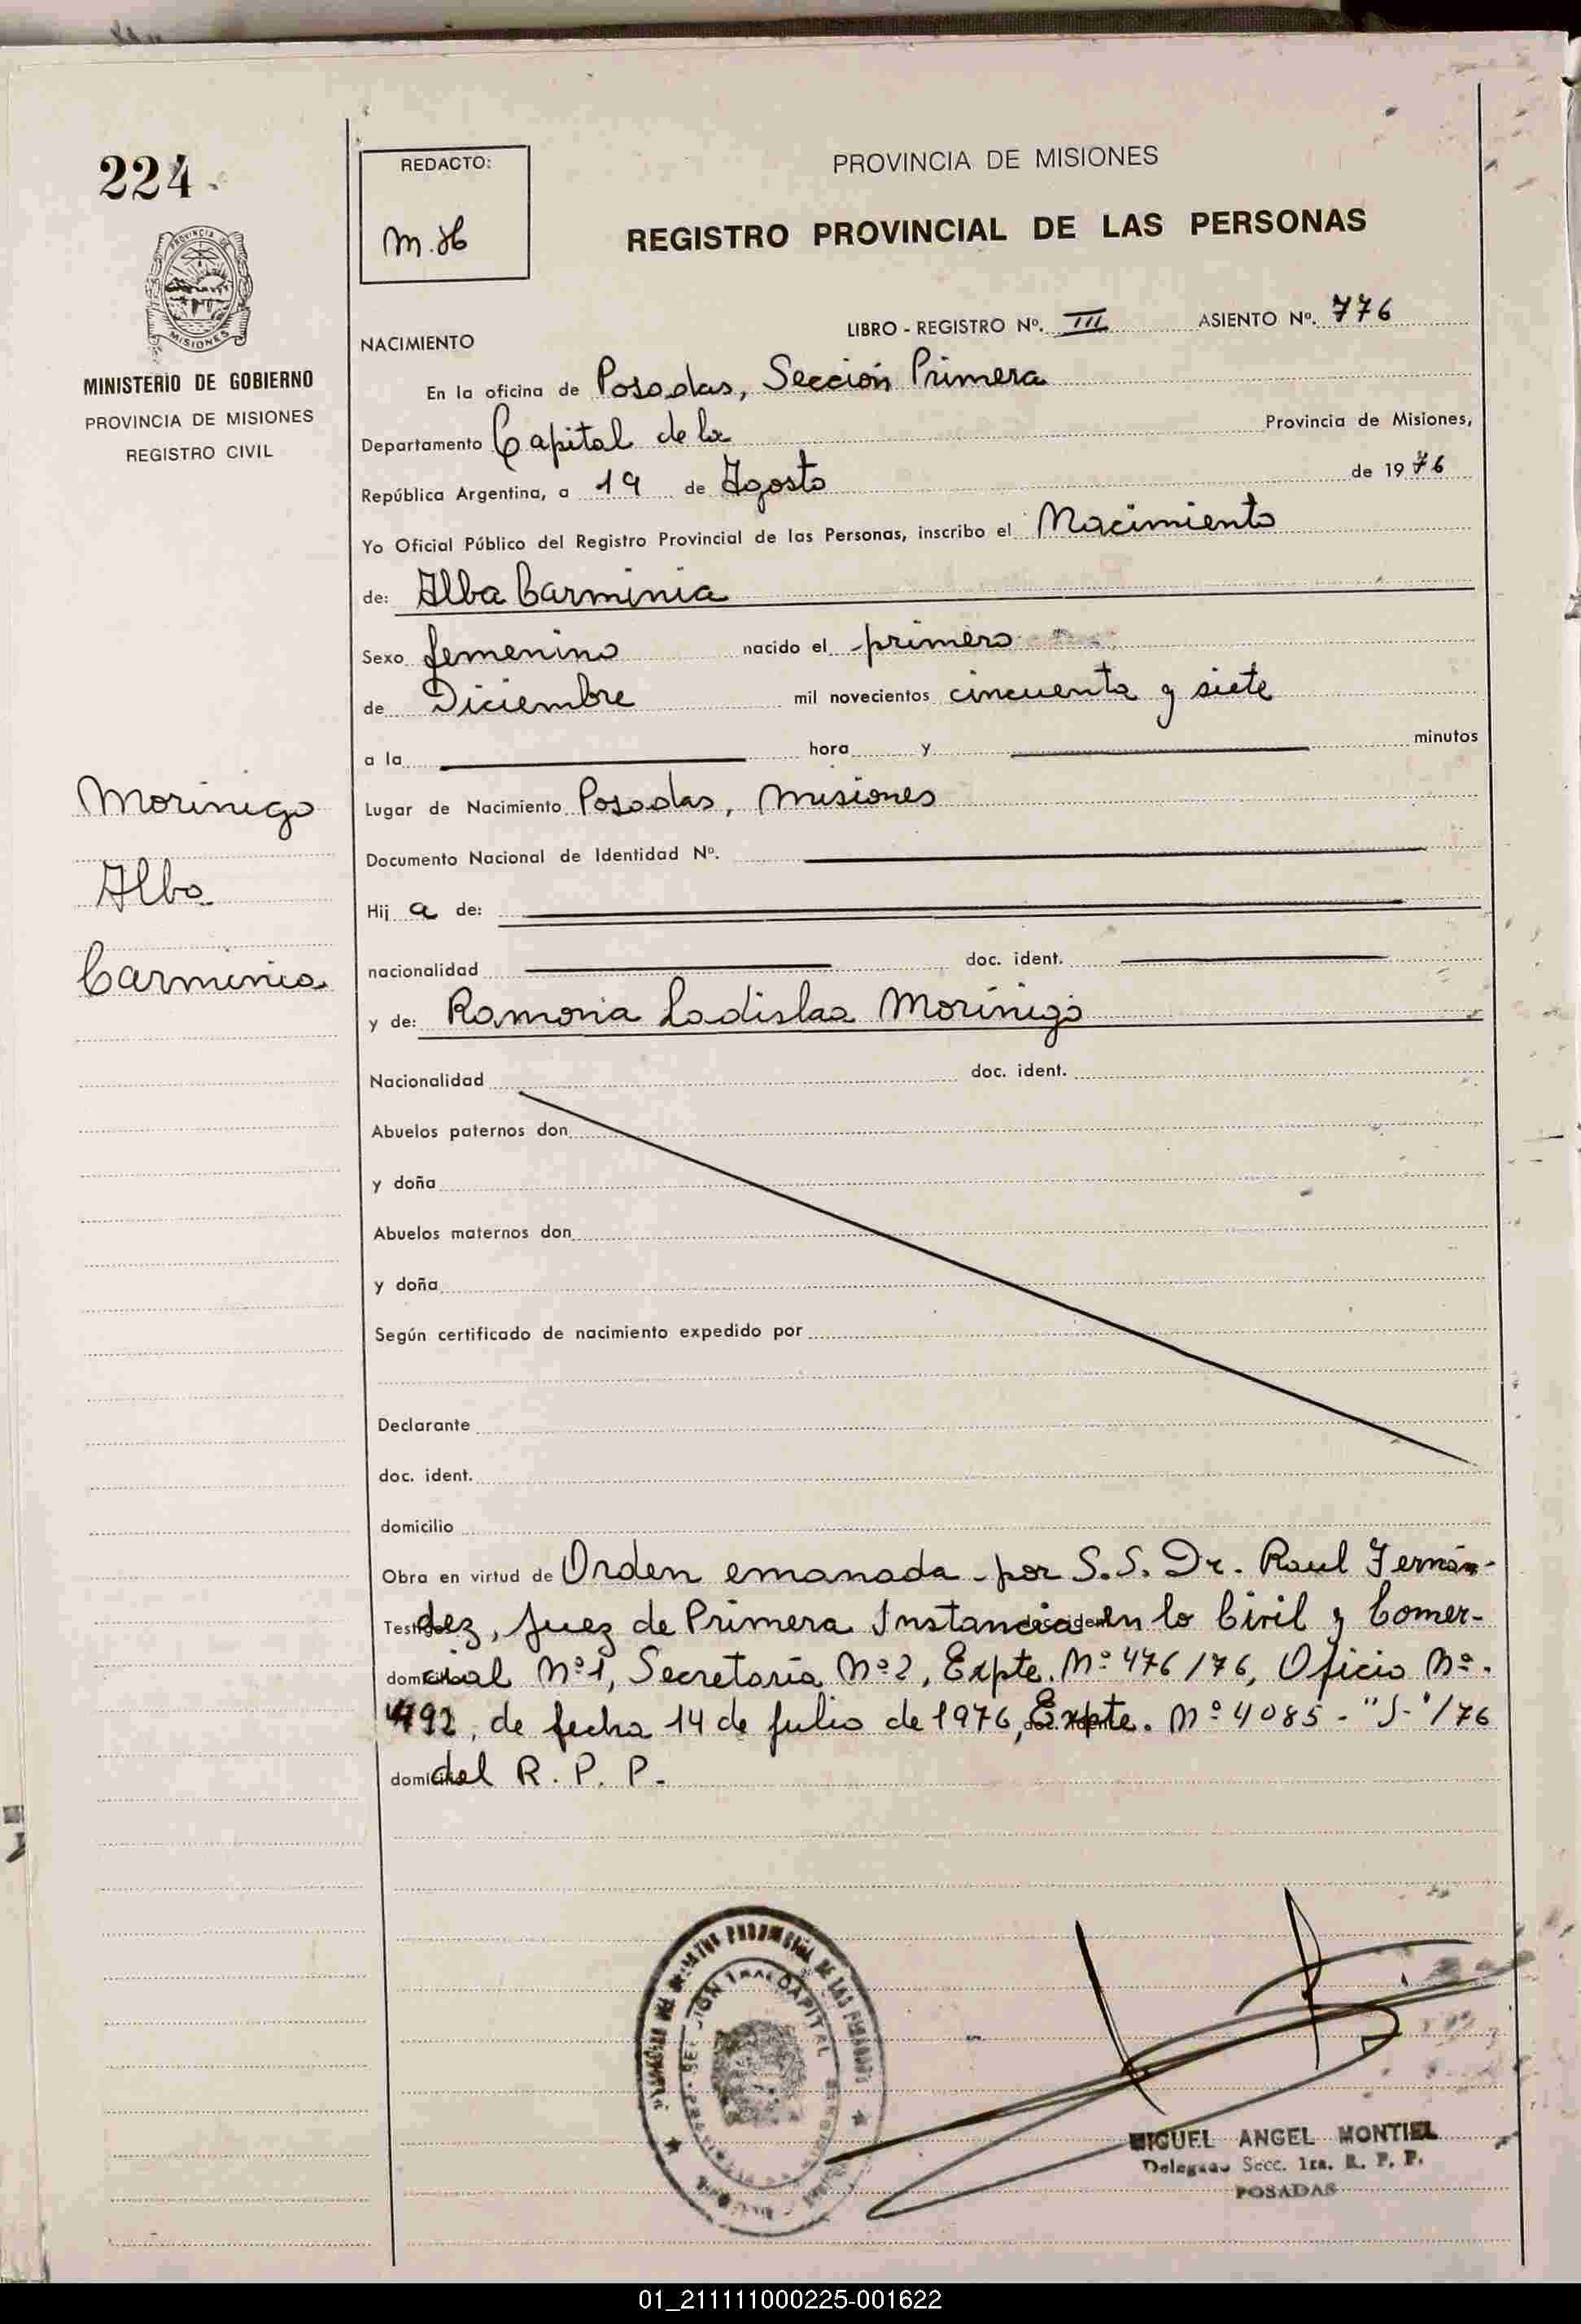 224
REDACTO:
M.H
PROVINCIA DE MISIONES
REGISTRO PROVINCIAL DE LAS PERSONAS
PROVINCIA DE
MISIONES
MINISTERIO DE GOBIERNO
PROVINCIA DE MISIONES
REGISTRO CIVIL
LIBRO - REGISTRO Nº. III ASIENTO Nº. 776
NACIMIENTO
En la oficina de Posadas, Sección Primera
Departamento Capital de la Provincia de Misiones,
República Argentina, a 19 de Agosto de 1976
Yo Oficial Público del Registro Provincial de las Personas, inscribo el Nacimiento
de: Alba Carminia
Sexo femenino nacido el primero
de Diciembre mil novecientos cincuenta y siete
a la hora y minutos
Morinigo
Alba
Carminia
Lugar de Nacimiento Posadas, Misiones
Documento Nacional de Identidad Nº.
Hij a de:
nacionalidad doc. ident.
y de: Ramona Ladislaa Morinigo
Nacionalidad doc. ident.
Abuelos paternos don
y doña
Abuelos maternos don
y doña
Según certificado de nacimiento expedido por
Declarante
doc. ident.
domicilio
Obra en virtud de Orden emanada por S.S. Dr. Raul Fernán-
dez, Juez de Primera Instancia en lo Civil y Comer-
cial Nº1, Secretaría Nº2, Expte. Nº 476/76, Oficio Nº.
492, de fecha 14 de Julio de 1976, Expte. Nº 4085-"S-"/76
del R. P. P.
SECCION 1RA. CAPITAL
MIGUEL ANGEL MONTIEL
Delegado Secc. 1ra. R. P. P.
POSADAS
01_211111000225-001622